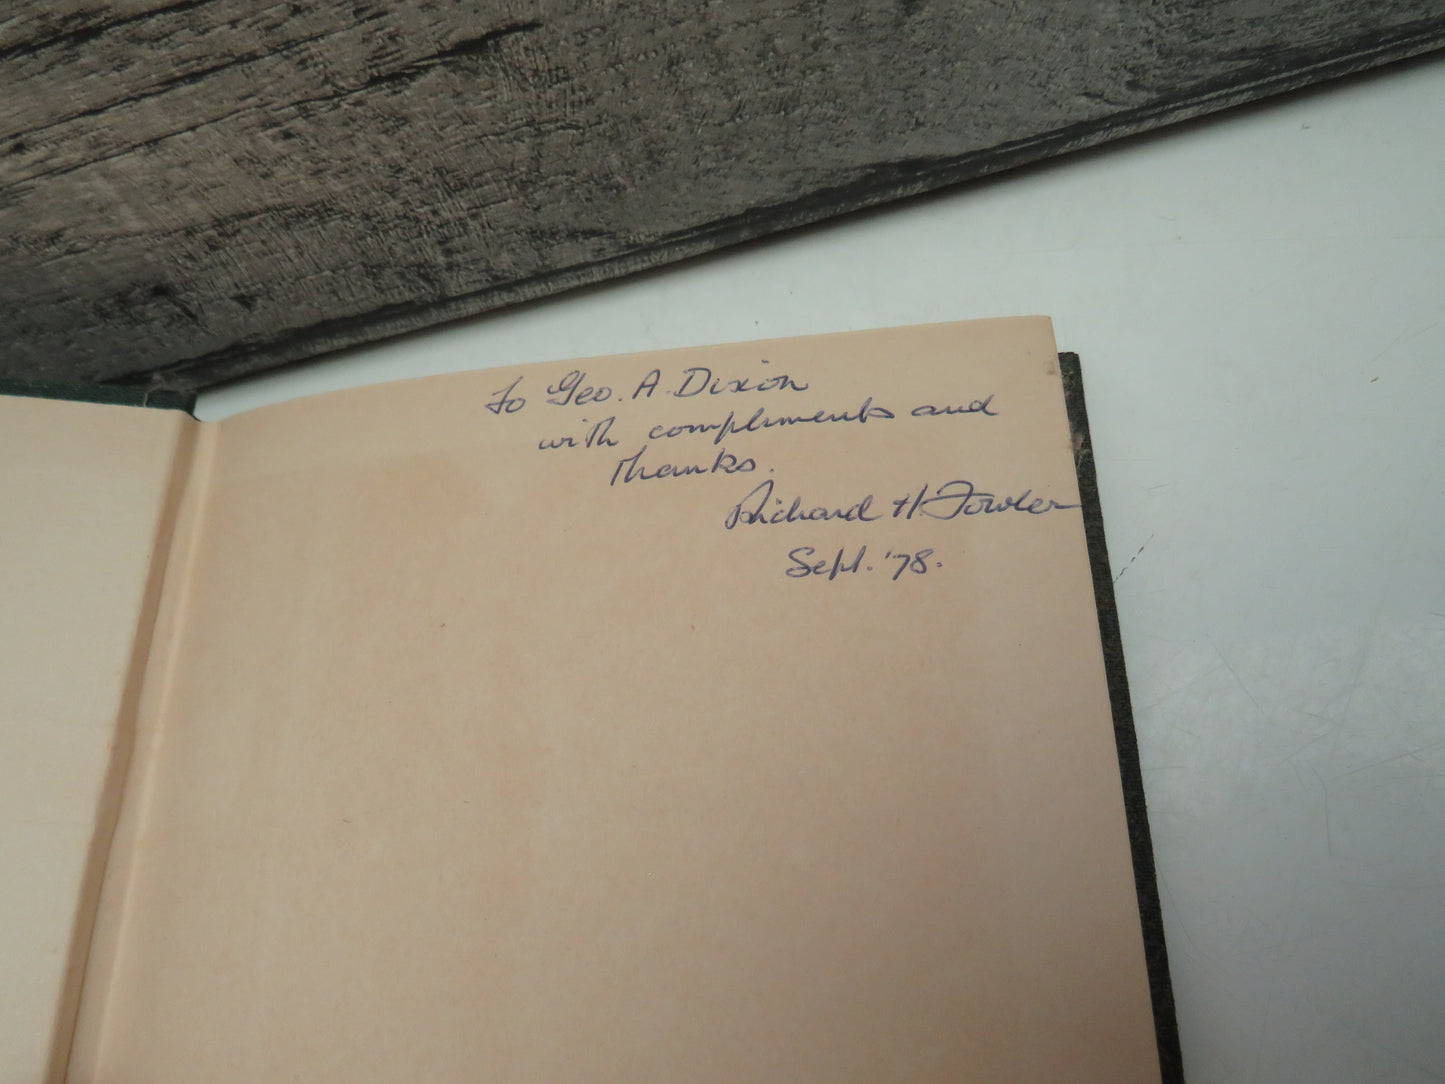 To Geo. A. Dixon
with compliments and
thanks.
Richard H. Fowler
Sept. '78.